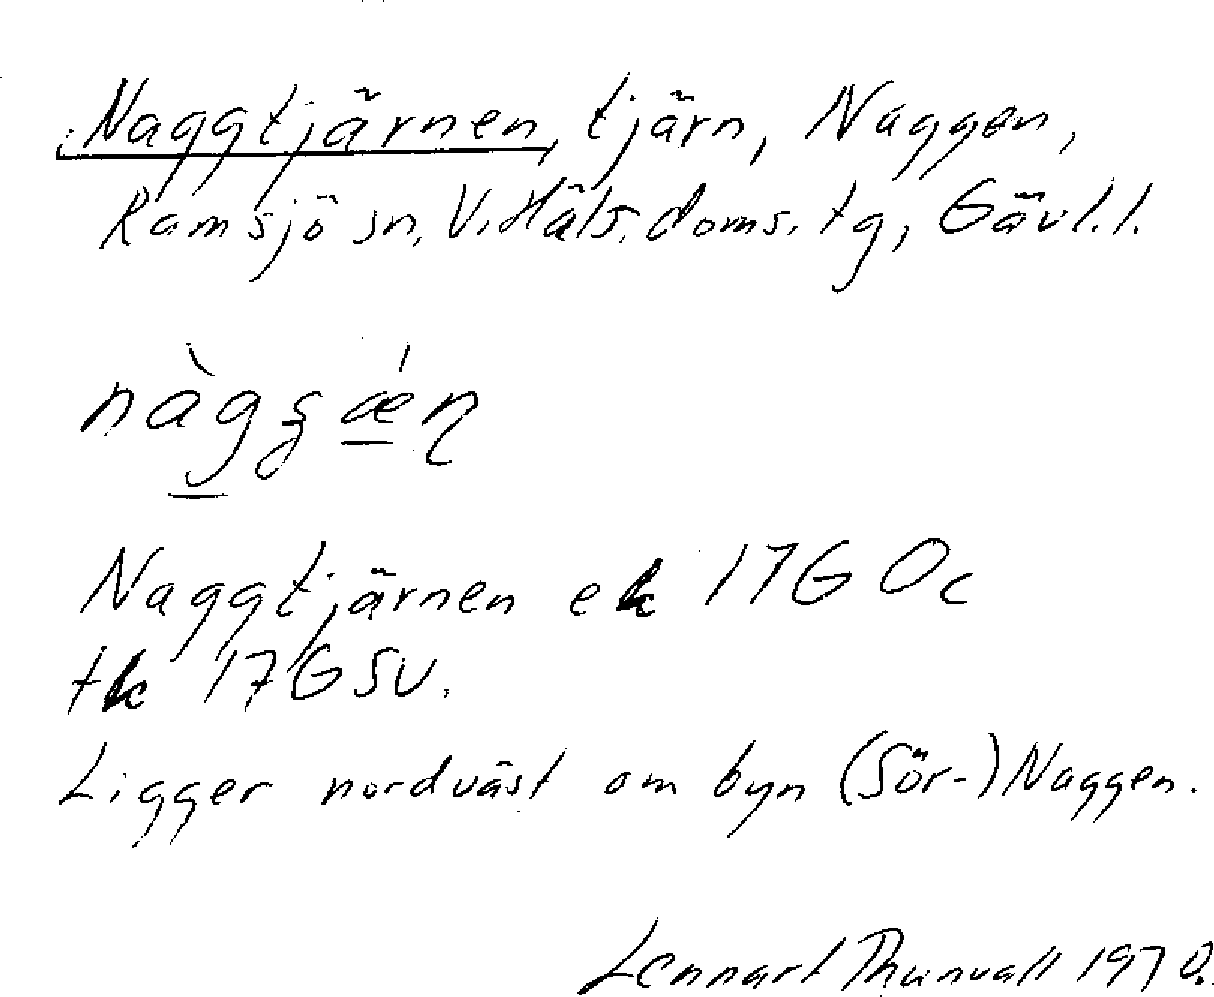 Naggtjärnen, tjärn, Naggen,
Ramsjö sn, V. Häls. doms. tg, Gävl. l.
nàgʒǽn
Naggtjärnen ek 17G Oc
tk 17G SV.
Ligger nordväst om byn (Sör-)Naggen.
Lennart Thunvall 1970.